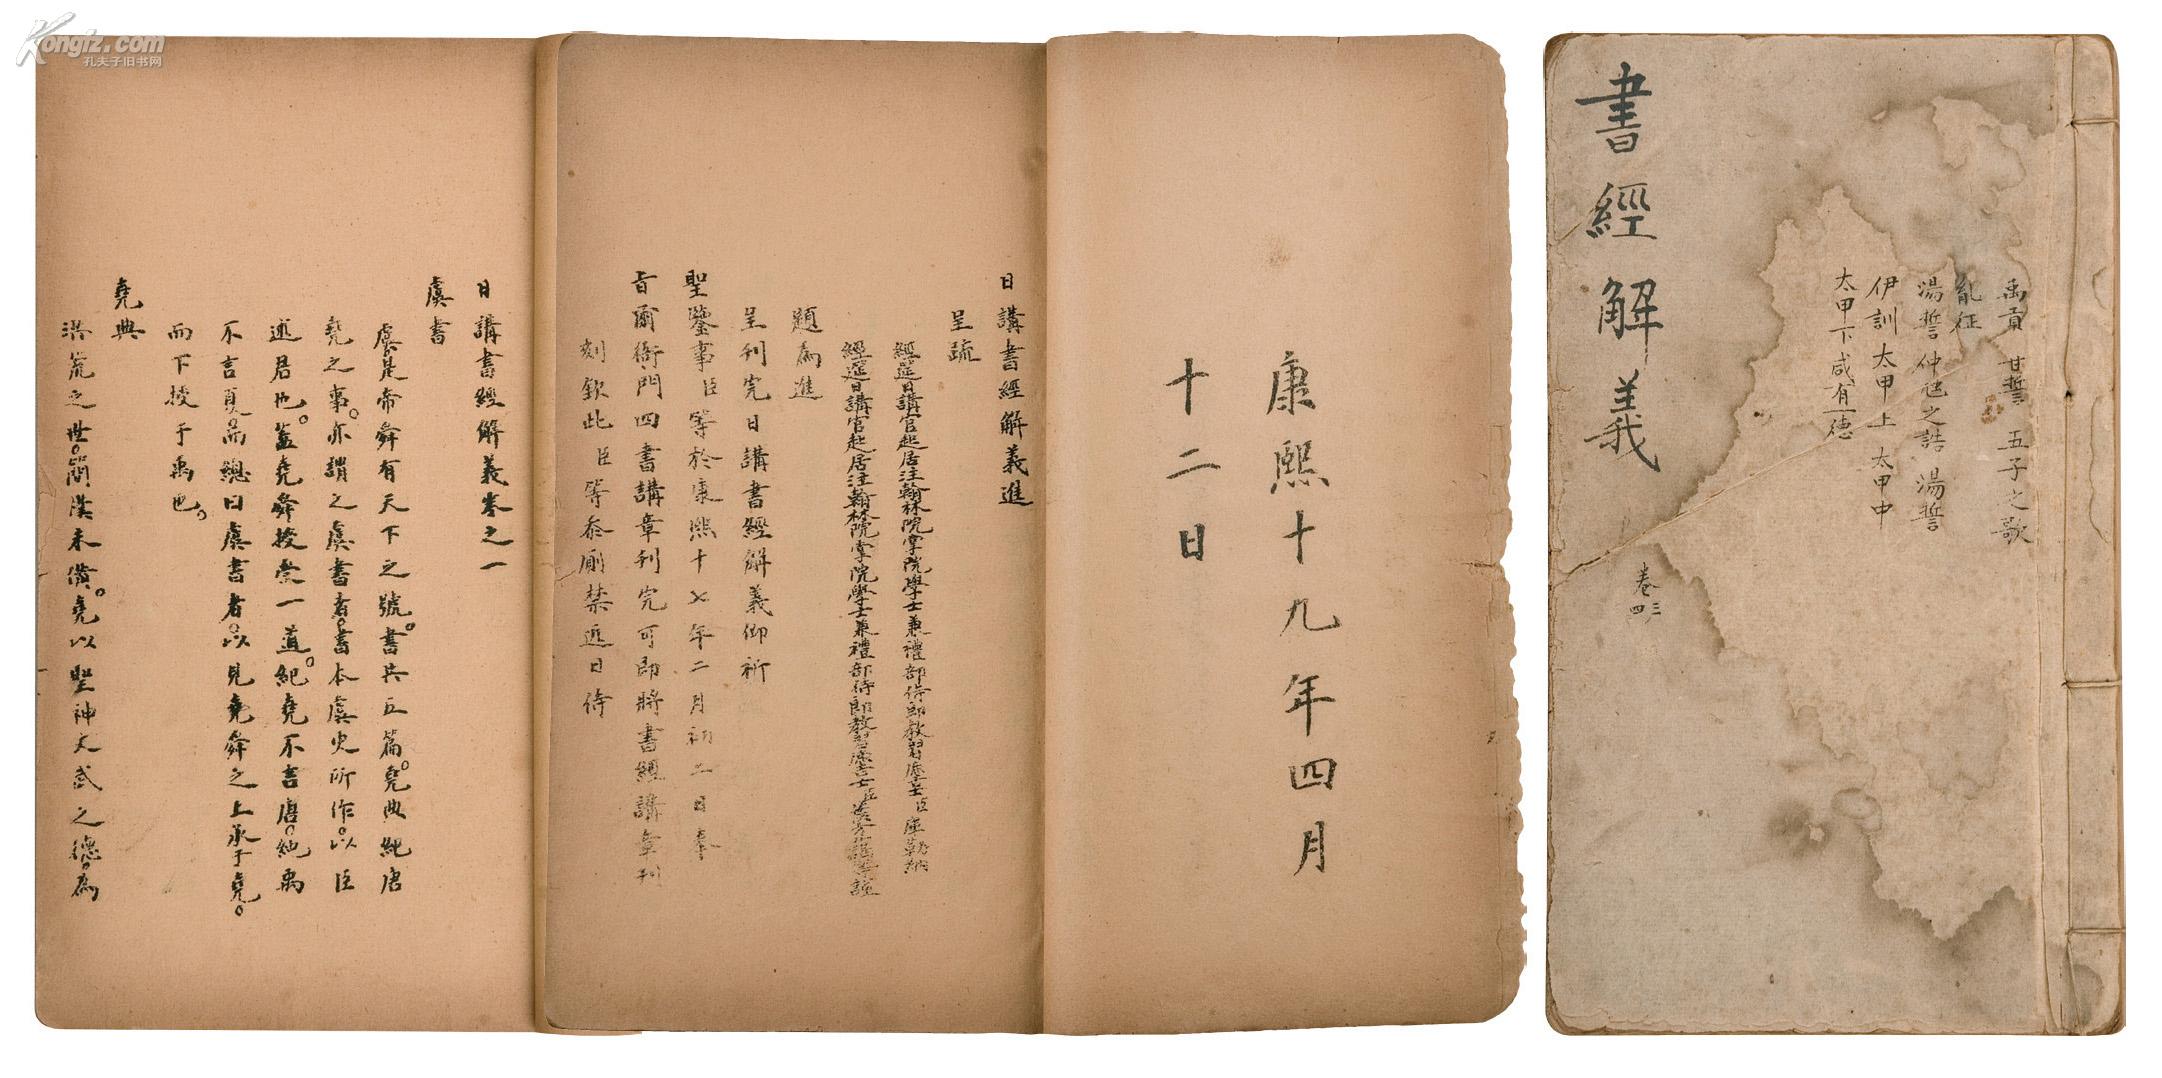 Kongfz.com
孔夫子旧书网
書經解義
卷三
四
禹貢 甘誓 五子之歌
胤征
湯誓 仲虺之誥 湯誓
伊訓 太甲上 太甲中
太甲下 咸有一德
康熙十九年四月
十二日
日講書經解義進
呈疏
經筵日講官起居注翰林院掌院學士兼禮部侍郎教習庶吉士臣庫勒納
經筵日講官起居注翰林院掌院學士兼禮部侍郎教習庶吉士臣葉方藹等謹
題為進
呈刊完日講書經解義仰祈
聖鑒事臣等於康熙十七年二月初二日奉
旨爾衙門四書講章刊完可即將書經講章刊
刻欽此臣等忝廁禁近日侍
日講書經解義卷之一
虞書
虞是帝舜有天下之號。書共五篇。堯典紀唐
堯之事。亦謂之虞書者。書本虞史所作。以臣
述君也。蓋堯舜授受一道。紀堯不言唐。紀禹
不言夏。而總曰虞書者。以見堯舜之上承于堯。
而下授于禹也。
堯典
洪荒之世。簡漢未備。堯以聖神文武之德。為